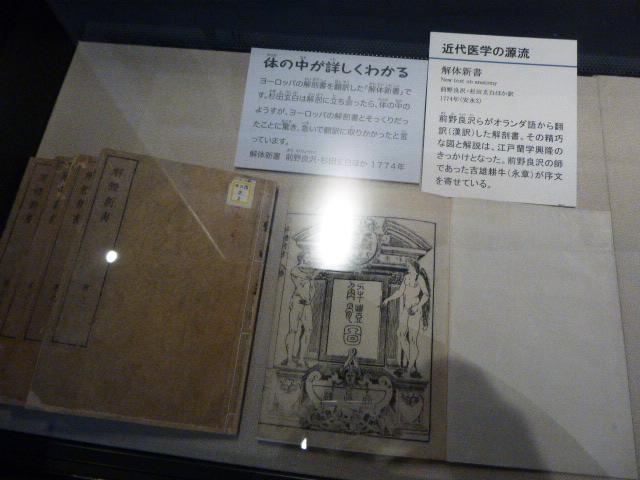 体の中が詳しくわかる
ヨーロッパの解剖書を翻訳した『解体新書』で
す。杉田玄白は解剖に立ち会ったら、体の中の
ようすが、ヨーロッパの解剖書とそっくりだっ
たことに驚き、急いで翻訳に取りかかったと言
っています。
解体新書 前野良沢・杉田玄白ほか 1774年
近代医学の源流
解体新書
New text on anatomy
前野良沢・杉田玄白ほか訳
1774年(安永3)
前野良沢らがオランダ語から翻
訳(漢訳)した解剖書。その精巧
な図と解説は、江戸蘭学興隆の
きっかけとなった。前野良沢の師
であった吉雄耕牛(永章)が序文
を寄せている。
解體新書